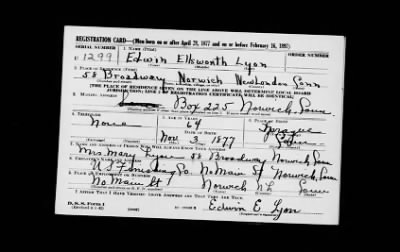 REGISTRATION CARD—(Men born on or after April 28, 1877 and on or before February 16, 1897)
SERIAL NUMBER 1. NAME (Print) ORDER NUMBER
U 1299 Edwin Ellsworth Lyon
2. PLACE OF RESIDENCE (Print)
58 Broadway Norwich New London Conn
[THE PLACE OF RESIDENCE GIVEN ON THE LINE ABOVE WILL DETERMINE LOCAL BOARD
JURISDICTION; LINE 2 OF REGISTRATION CERTIFICATE WILL BE IDENTICAL]
3. MAILING ADDRESS
Box 225 Norwich, Conn
4. TELEPHONE 5. AGE IN YEARS 6. PLACE OF BIRTH
None 64 Sprague
DATE OF BIRTH
Nov 3 1877 Conn
7. NAME AND ADDRESS OF PERSON WHO WILL ALWAYS KNOW YOUR ADDRESS
Mrs Mary Lyon 58 Broadway Norwich, Conn
8. EMPLOYER'S NAME AND ADDRESS
Co. No Main St Norwich, Conn
9. PLACE OF EMPLOYMENT OR BUSINESS
No Main St Norwich N L Conn
I AFFIRM THAT I HAVE VERIFIED ABOVE ANSWERS AND THAT THEY ARE TRUE.
D. S. S. Form 1
Edwin E Lyon